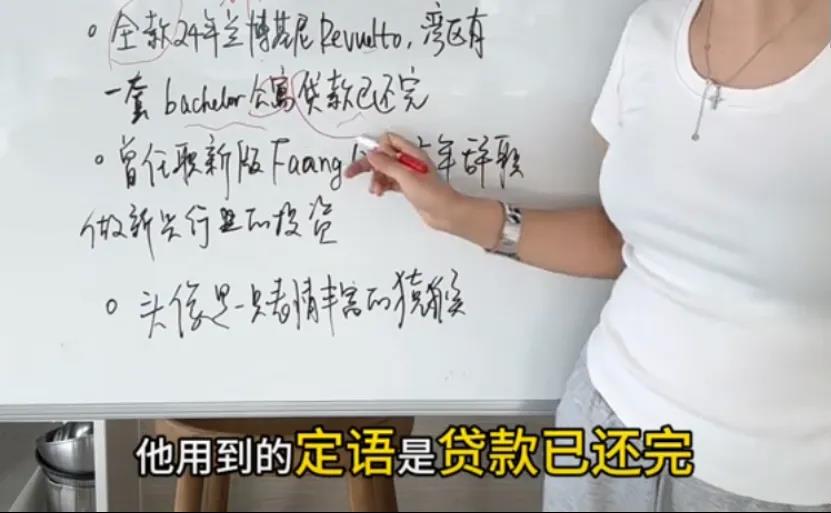 全款24年兰博基尼Revuelto,湾区有
一套bachelor公寓贷款已还完
曾任职新版Faang 年辞职
做新兴行业的投资
头像是一只表情丰富的猿猴
他用到的定语是贷款已还完